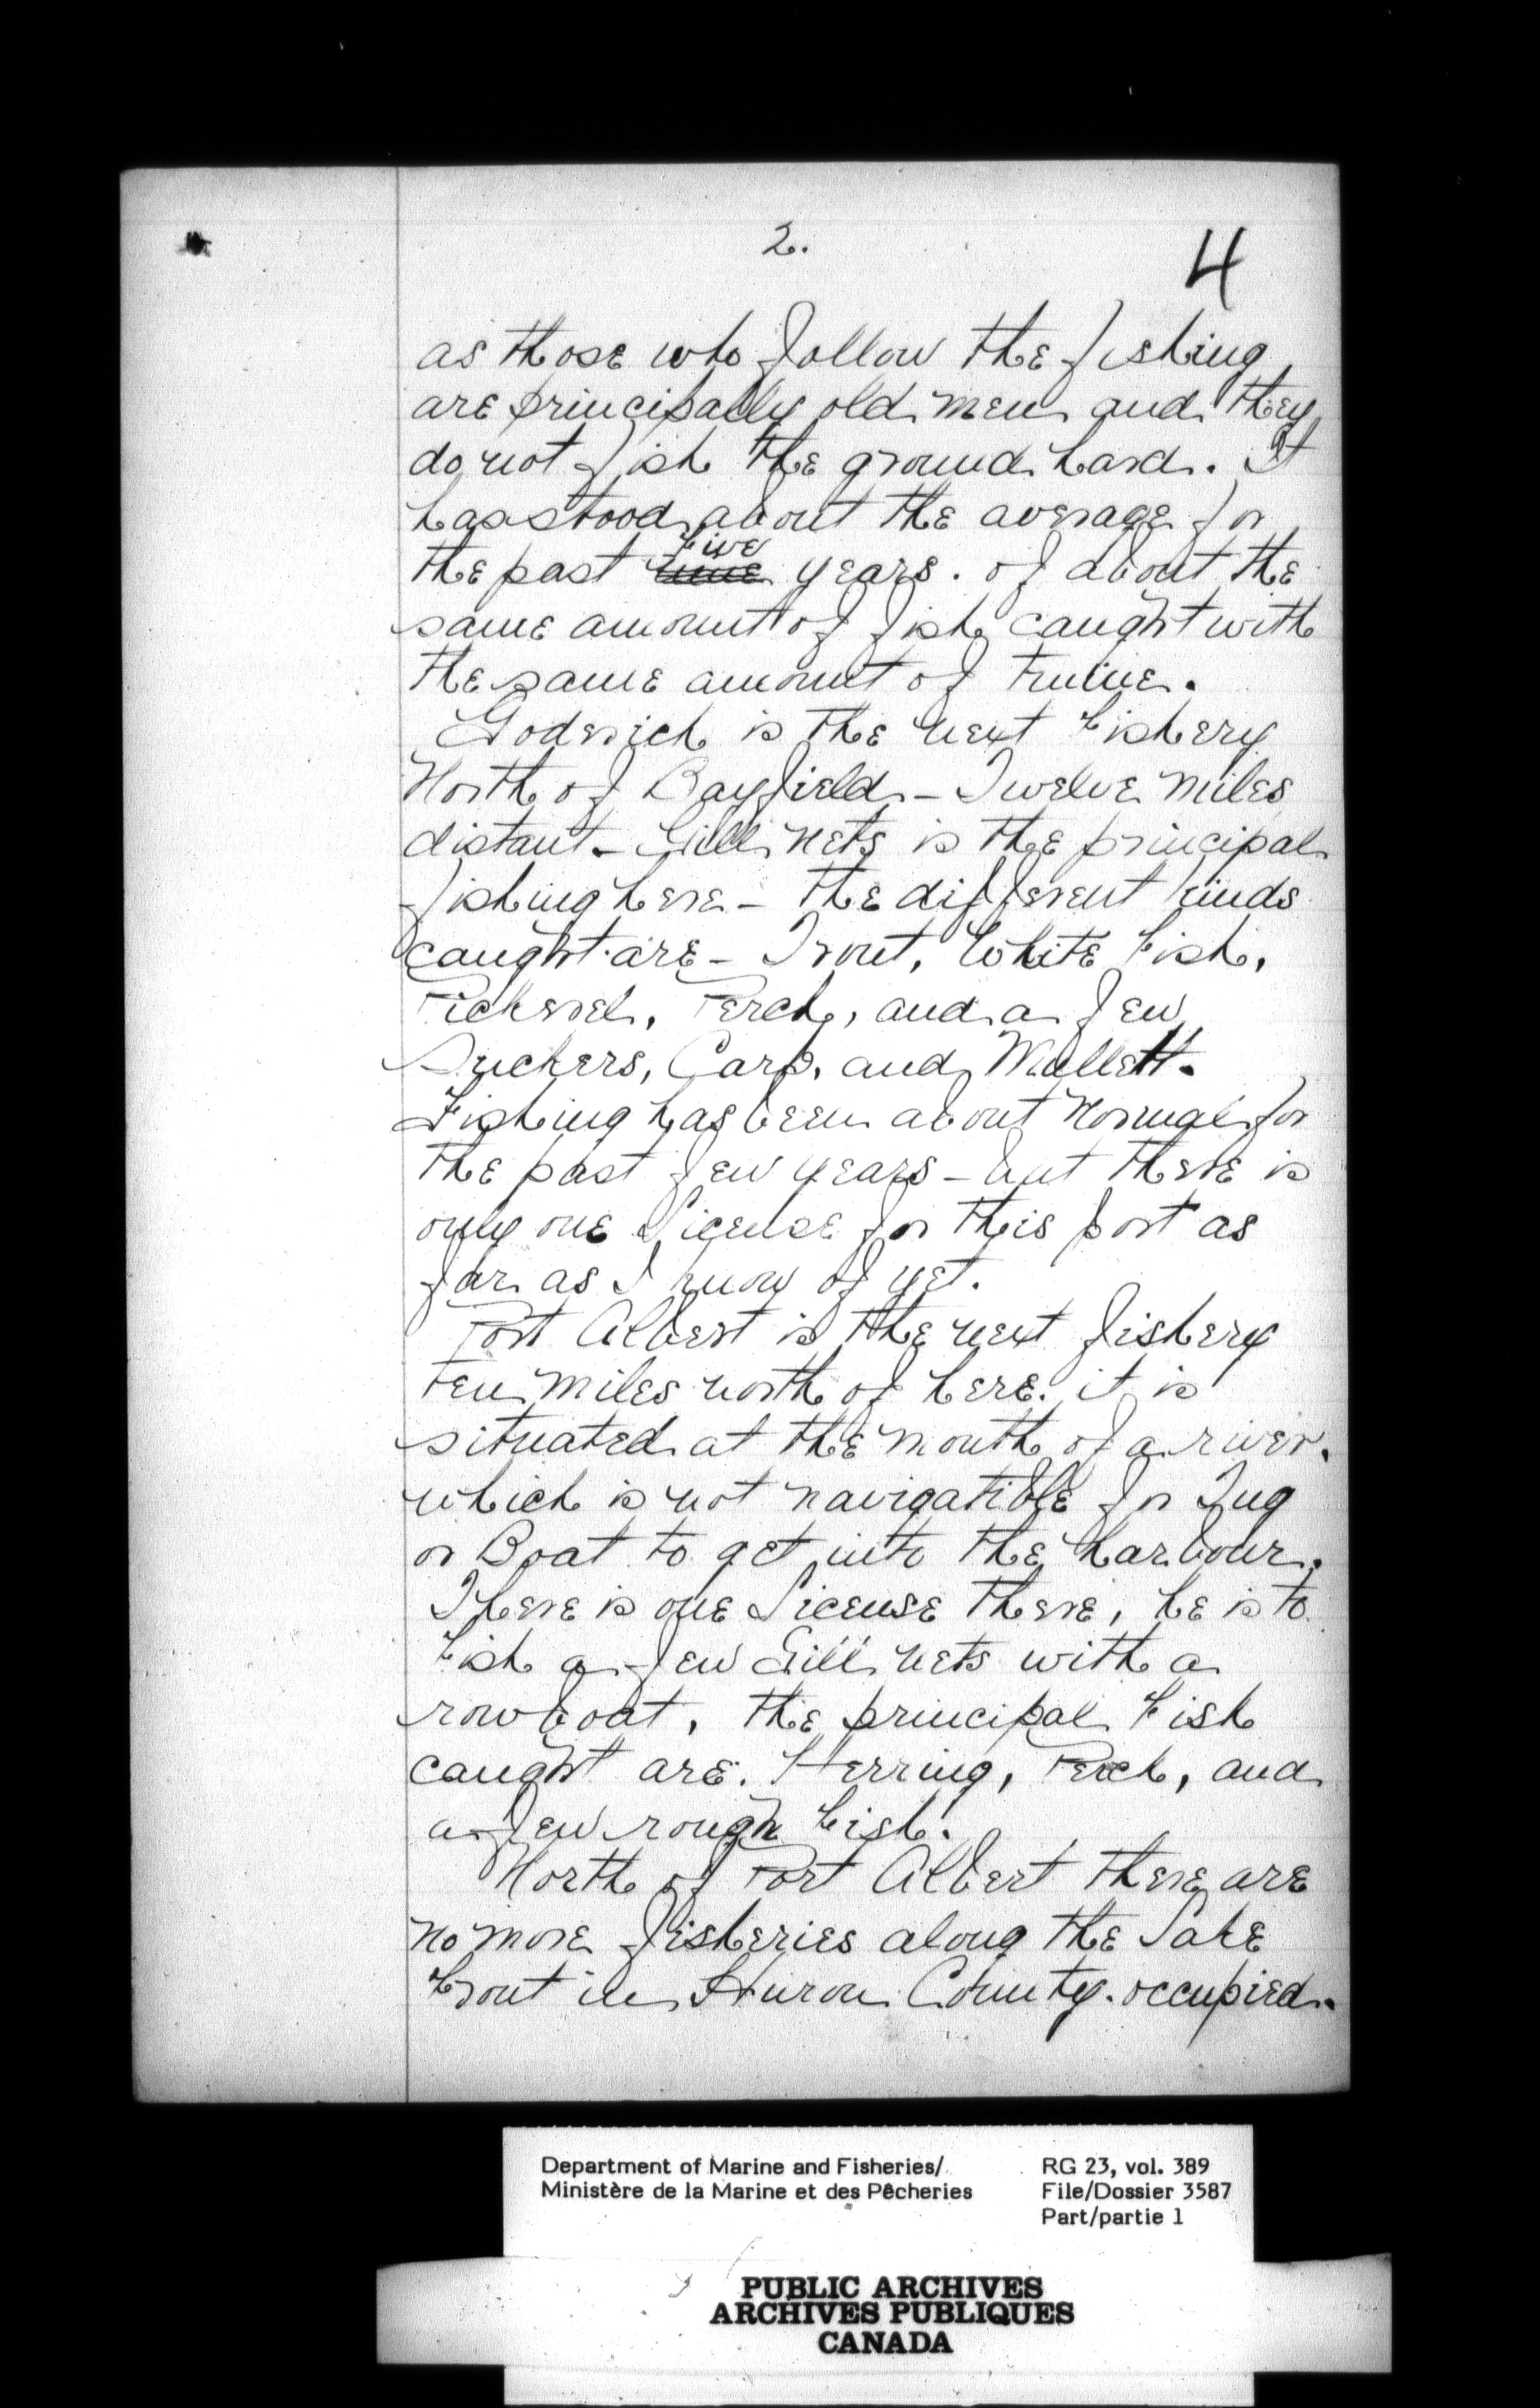 2.
4
as those who follow the fishing
are principally old men and they
do not fish the ground hard. It
has stood about the average for
Five
the past years. of about the
same amount of fish caught with
the same amount of twine.
Goderich is the next Fishery
North of Bayfield - Twelve Miles
distant - Gill nets is the principal
fishing here - the different kinds
caught are - Trout, White Fish,
Pickerel, Perch, and a few
Suckers, Carp, and Mullett.
Fishing has been about Normal for
the past few years - but there is
only one License for this port as
far as I know of yet.
Port Albert is the next fishery
Ten Miles north of here. it is
situated at the mouth of a river.
which is not navigatible for Tug
or Boat to get into the harbour.
There is one License there, he is to
Fish a few Gill nets with a
rowboat, the principal Fish
caught are. Herring, Perch, and
a few rough Fish.
North of Port Albert there are
no more fisheries along the Lake
Front in Huron County. occupied.
Department of Marine and Fisheries/
Ministère de la Marine et des Pêcheries
RG 23, vol. 389
File/Dossier 3587
Part/partie 1
PUBLIC ARCHIVES
ARCHIVES PUBLIQUES
CANADA